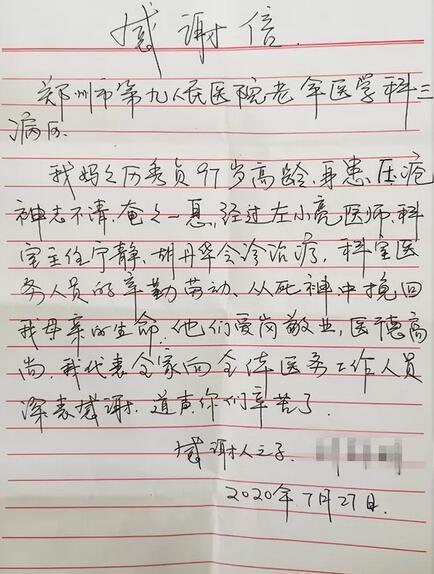 感谢信.
郑州市第九人民医院老年医学科三
病区.
我妈妈历秀贞97岁高龄.身患压疮
神志不清.奄奄一息.经过左小亮医师.科
室主任宁静.胡丹华会诊治疗,科室医
务人员的辛勤劳动、从死神中挽回
我母亲的生命.他们爱岗敬业,医德高
尚.我代表全家向全体医务工作人员
深表感谢.道声.你们辛苦了.
感谢人之子.
2020年.7月27日.